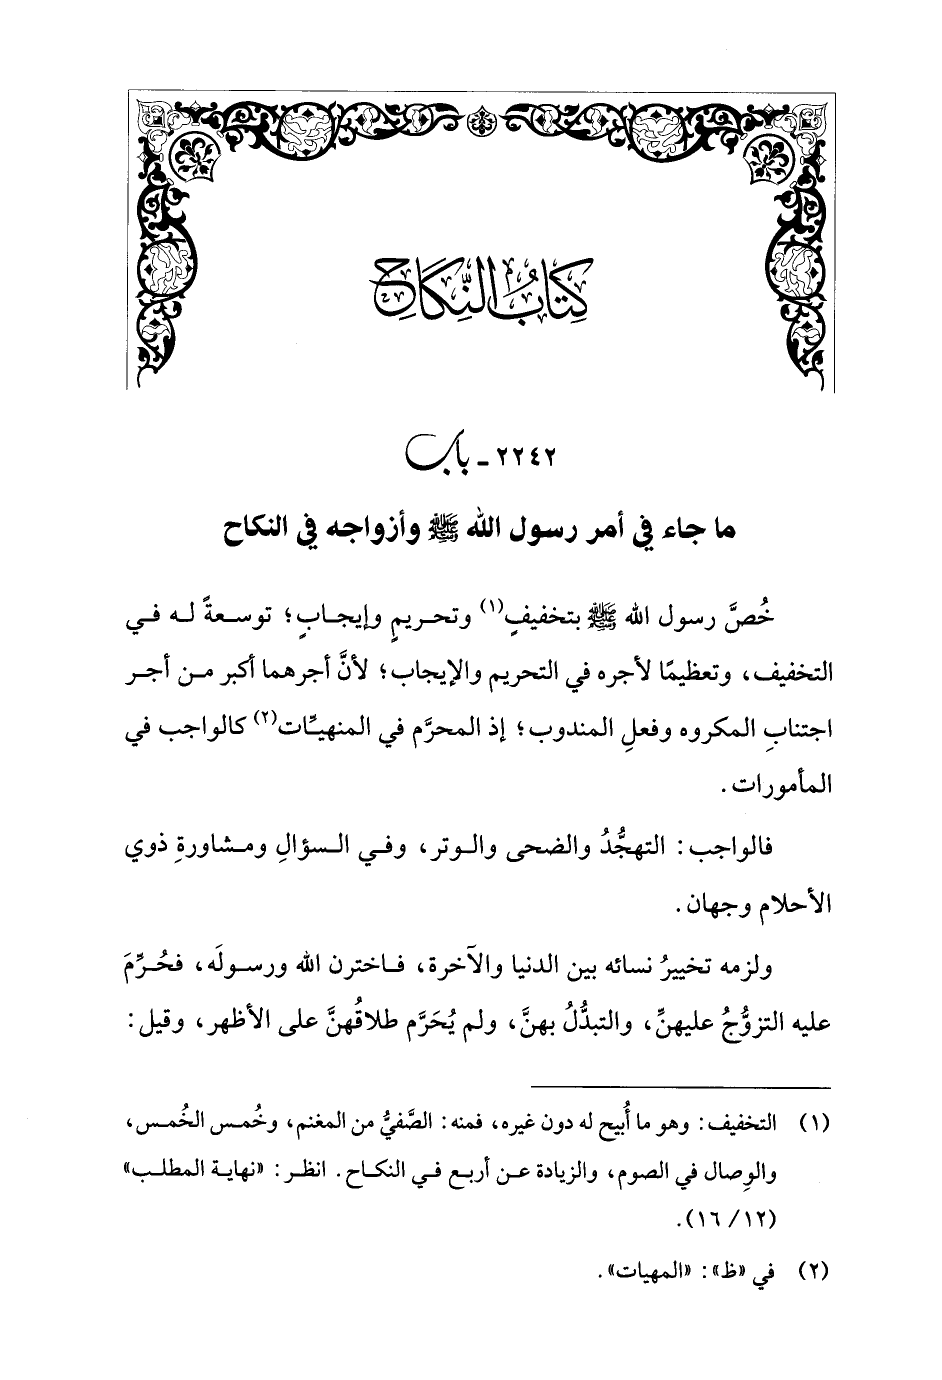 كِتَابُ النِّكَاحِ
٢٢٤٢ - باب
ما جاء في أمر رسول الله ﷺ وأزواجه في النكاح
خُصَّ رسول الله ﷺ بتخفيفٍ(١) وتحريمٍ وإيجابٍ؛ توسعةً له في
التخفيف، وتعظيمًا لأجره في التحريم والإيجاب؛ لأنَّ أجرهما أكبر من أجر
اجتنابِ المكروه وفعلِ المندوب؛ إذ المحرَّم في المنهيَّات(٢) كالواجب في
المأمورات.
فالواجب: التهجُّدُ والضحى والوتر، وفي السؤالِ ومشاورةِ ذوي
الأحلام وجهان.
ولزمه تخييرُ نسائه بين الدنيا والآخرة، فاخترن الله ورسولَه، فحُرِّمَ
عليه التزوُّجُ عليهنَّ، والتبدُّلُ بهنَّ، ولم يُحَرَّم طلاقُهنَّ على الأظهر، وقيل:
(١) التخفيف: وهو ما أُبيح له دون غيره، فمنه: الصَّفيُّ من المغنم، وخُمس الخُمس،
والوِصال في الصوم، والزيادة عن أربع في النكاح. انظر: «نهاية المطلب»
(١٢/ ١٦).
(٢) في «ظ»: «المهيات».